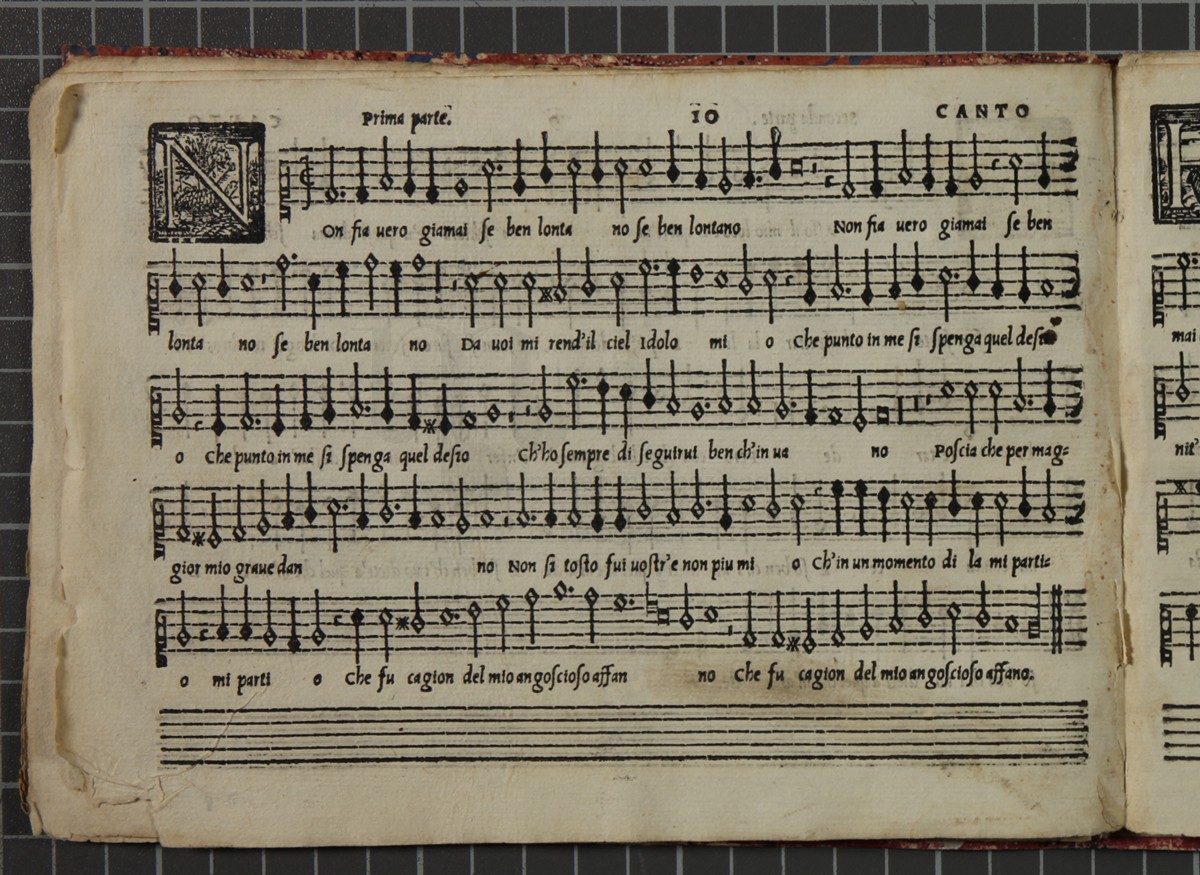 Prima parte. 10 CANTO
NOn fia uero giamai se ben lonta no se ben lontano Non fia uero giamai se ben
lonta no se ben lonta no Da uoi mi rend'il ciel Idolo mi o Che punto in me si spenga quel desio
o Che punto in me si spenga quel desio Ch'ho sempre di seguirui ben ch'in ua no Poscia che per mag=
gior mio graue dan no Non si tosto fui uostr'e non piu mi o Ch'in un momento di la mi parti=
o mi parti o Che fu cagion del mio angoscioso affan no Che fu cagion del mio angoscioso affano.
mai
nit'